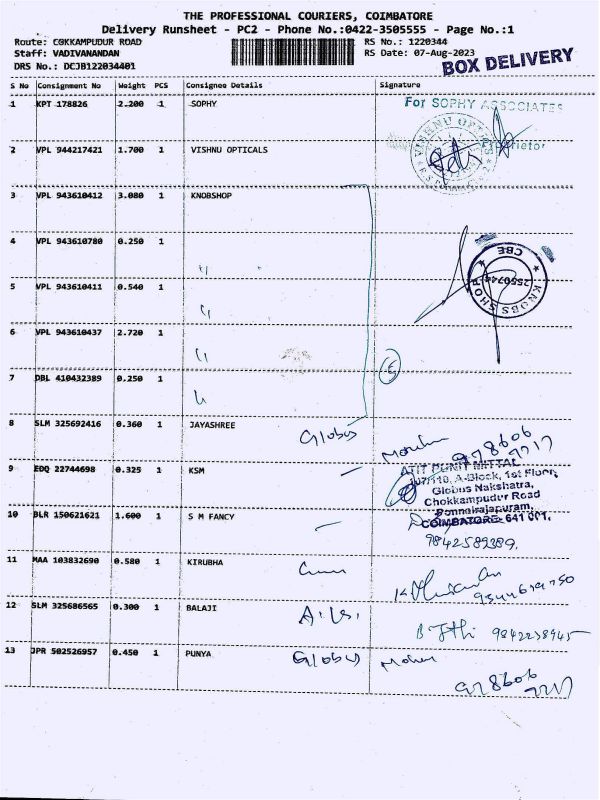 THE PROFESSIONAL COURIERS, COIMBATORE
Delivery Runsheet - PC2 - Phone No.:0422-3505555 - Page No.:1
Route: COKKAMPUDUR ROAD RS No.: 1220344
Staff: VADIVANANDAN RS Date: 07-Aug-2023
DRS No.: DCJB122034401 BOX DELIVERY
S No Consignment No Weight PCS Consignee Details Signature
1 KPT 178826 2.200 1 SOPHY For SOPHY ASSOCIATES
VISHNU OPTICALS
Proprietor
2 VPL 944217421 1.700 1 VISHNU OPTICALS
3 VPL 943610412 3.080 1 KNOBSHOP
4 VPL 943610780 0.250 1 "
KNOBS SHOP CBE
5 VPL 943610411 0.540 1 "
6 VPL 943610437 2.720 1 "
7 DBL 410432389 0.250 1 " 5
8 SLM 325692416 0.360 1 JAYASHREE Globus
978606
7217
9 EDQ 22744698 0.325 1 KSM
ATIT PUNIT MITTAL
107/110, A-Block, 1st Floor,
Globus Nakshatra,
Chokkampudur Road
Ponnairajapuram,
COIMBATORE- 641 001.
10 BLR 150621621 1.600 1 S M FANCY
9842589389.
11 MAA 103832690 0.580 1 KIRUBHA
12 SLM 325686565 0.300 1 BALAJI
9842238945
13 JPR 502526957 0.450 1 PUNYA Globus
978606
7217